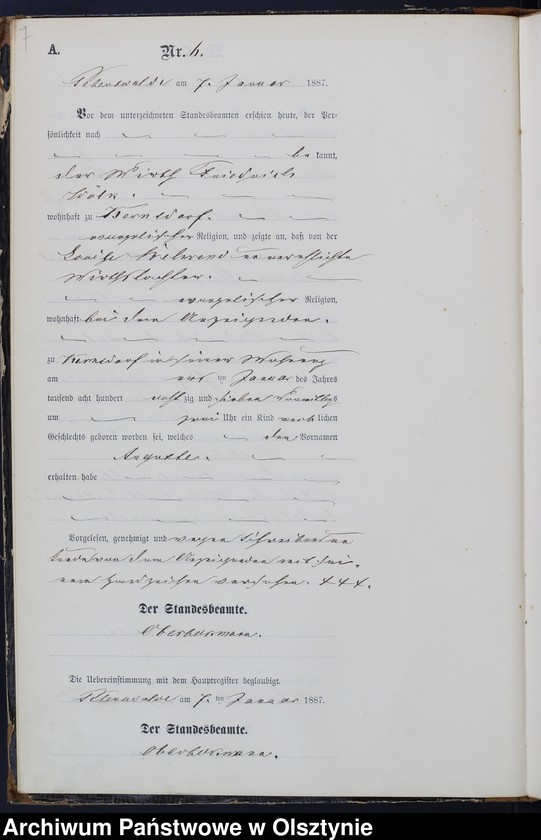 7
A. Nr. 6.
am 7. Januar 1887.
Vor dem unterzeichneten Standesbeamten erschien heute, der Per-
sönlichkeit nach
be kannt,
der Wirth Friedrich
wohnhaft zu Kerndorf.
evangelischer Religion, und zeigte an, daß von der
Louise unverehelichte
Wirthstochter.
evangelischer Religion,
wohnhaft bei dem Anzeigenden.
zu Kerndorf in seiner Wohnung
am ten Januar des Jahres
tausend acht hundert acht zig und sieben Vormittags
um zwei Uhr ein Kind weib lichen
Geschlechts geboren worden sei, welches den Vornamen
Auguste.
erhalten habe
Vorgelesen, genehmigt und wegen Schreibensun
kunde von dem Anzeigenden mit sei-
nem Handzeichen versehen. +++.
Der Standesbeamte.
Die Uebereinstimmung mit dem Hauptregister beglaubigt.
am 7. ten Januar 1887.
Der Standesbeamte.
Archiwum Państwowe w Olsztynie